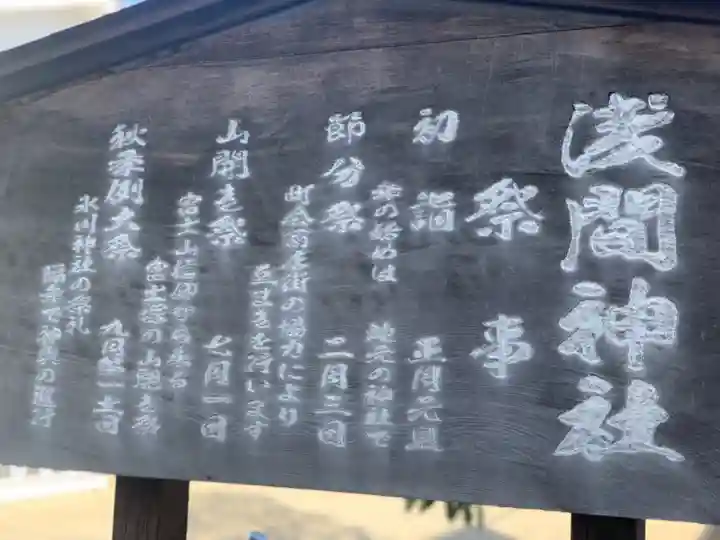 浅間神社
祭事
初詣 正月元旦
年の始めは 地元の神社で
節分祭 二月三日
町会商店街の協力により
豆まきを行います
山開き祭 七月一日
富士山信仰から来る
富士塚の山開き祭
秋季例大祭 九月第二土日
氷川神社の祭礼
隔年で神輿の渡行